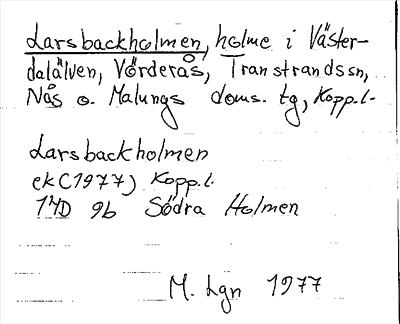 Larsbackholmen, holme i Väster-
dalälven, Vörderås, Transtrandssn,
Nås o. Malungs doms. tg, Kopp.l.
Larsbackholmen
ek (1977) Kopp.l.
17D 9b Södra Holmen
M. Lgn 1977